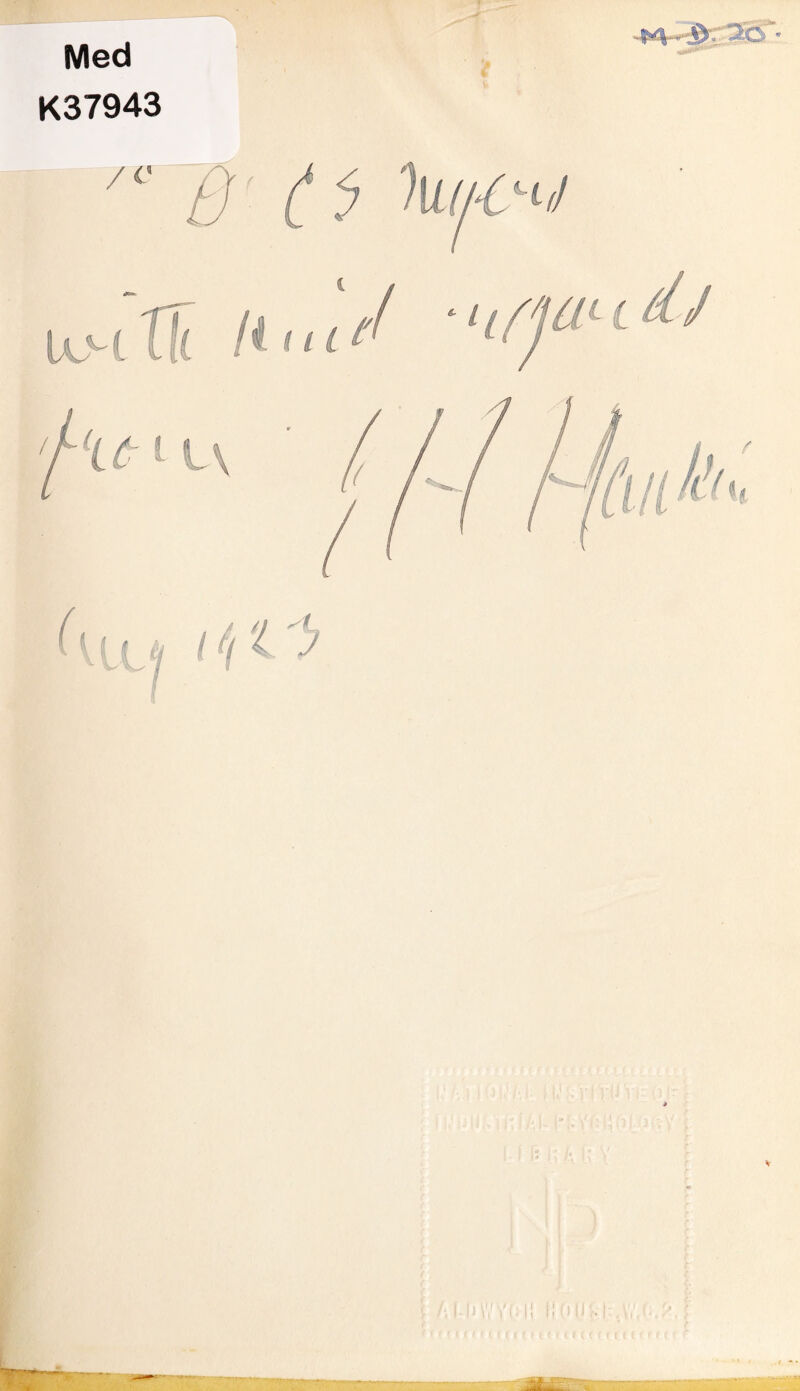 Med
K37943
M.D. 20.
To D. C S Myers
with kind regards
from
Aug 1923
NATIONAL INSTITUTE OF
INDUSTRIAL PSYCHOLOGY
LIBRARY
NIIP
ALDWYCH HOUSE, W.C.2.